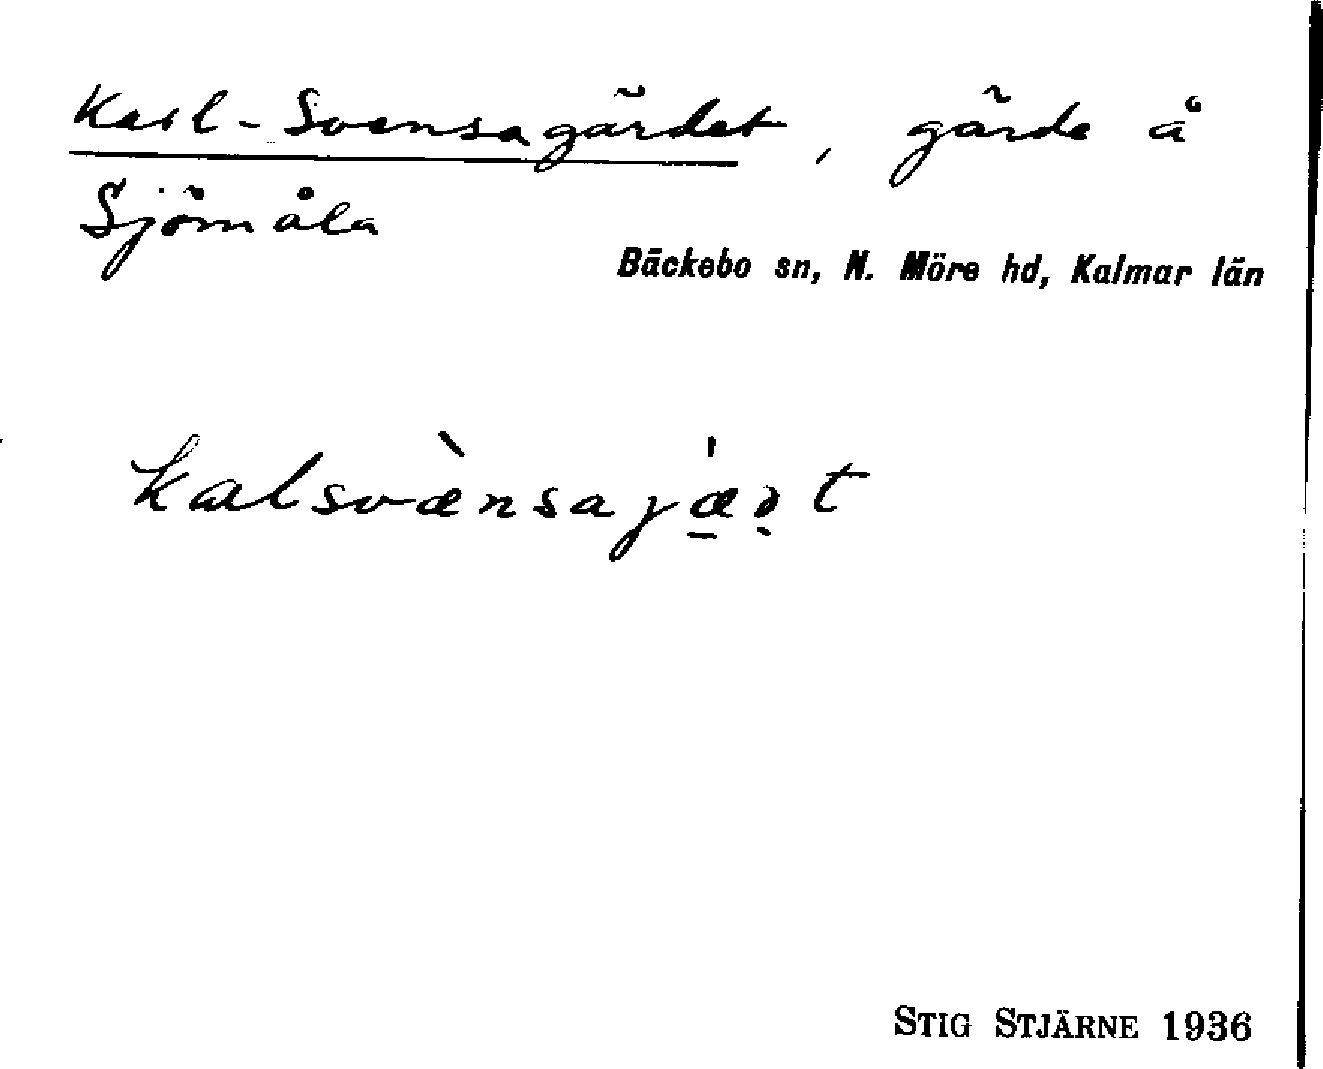 Karl-Svensagärdet, gärde å
Sjömåla
Bäckebo sn, N. Möre hd, Kalmar län
STIG STJÄRNE 1936